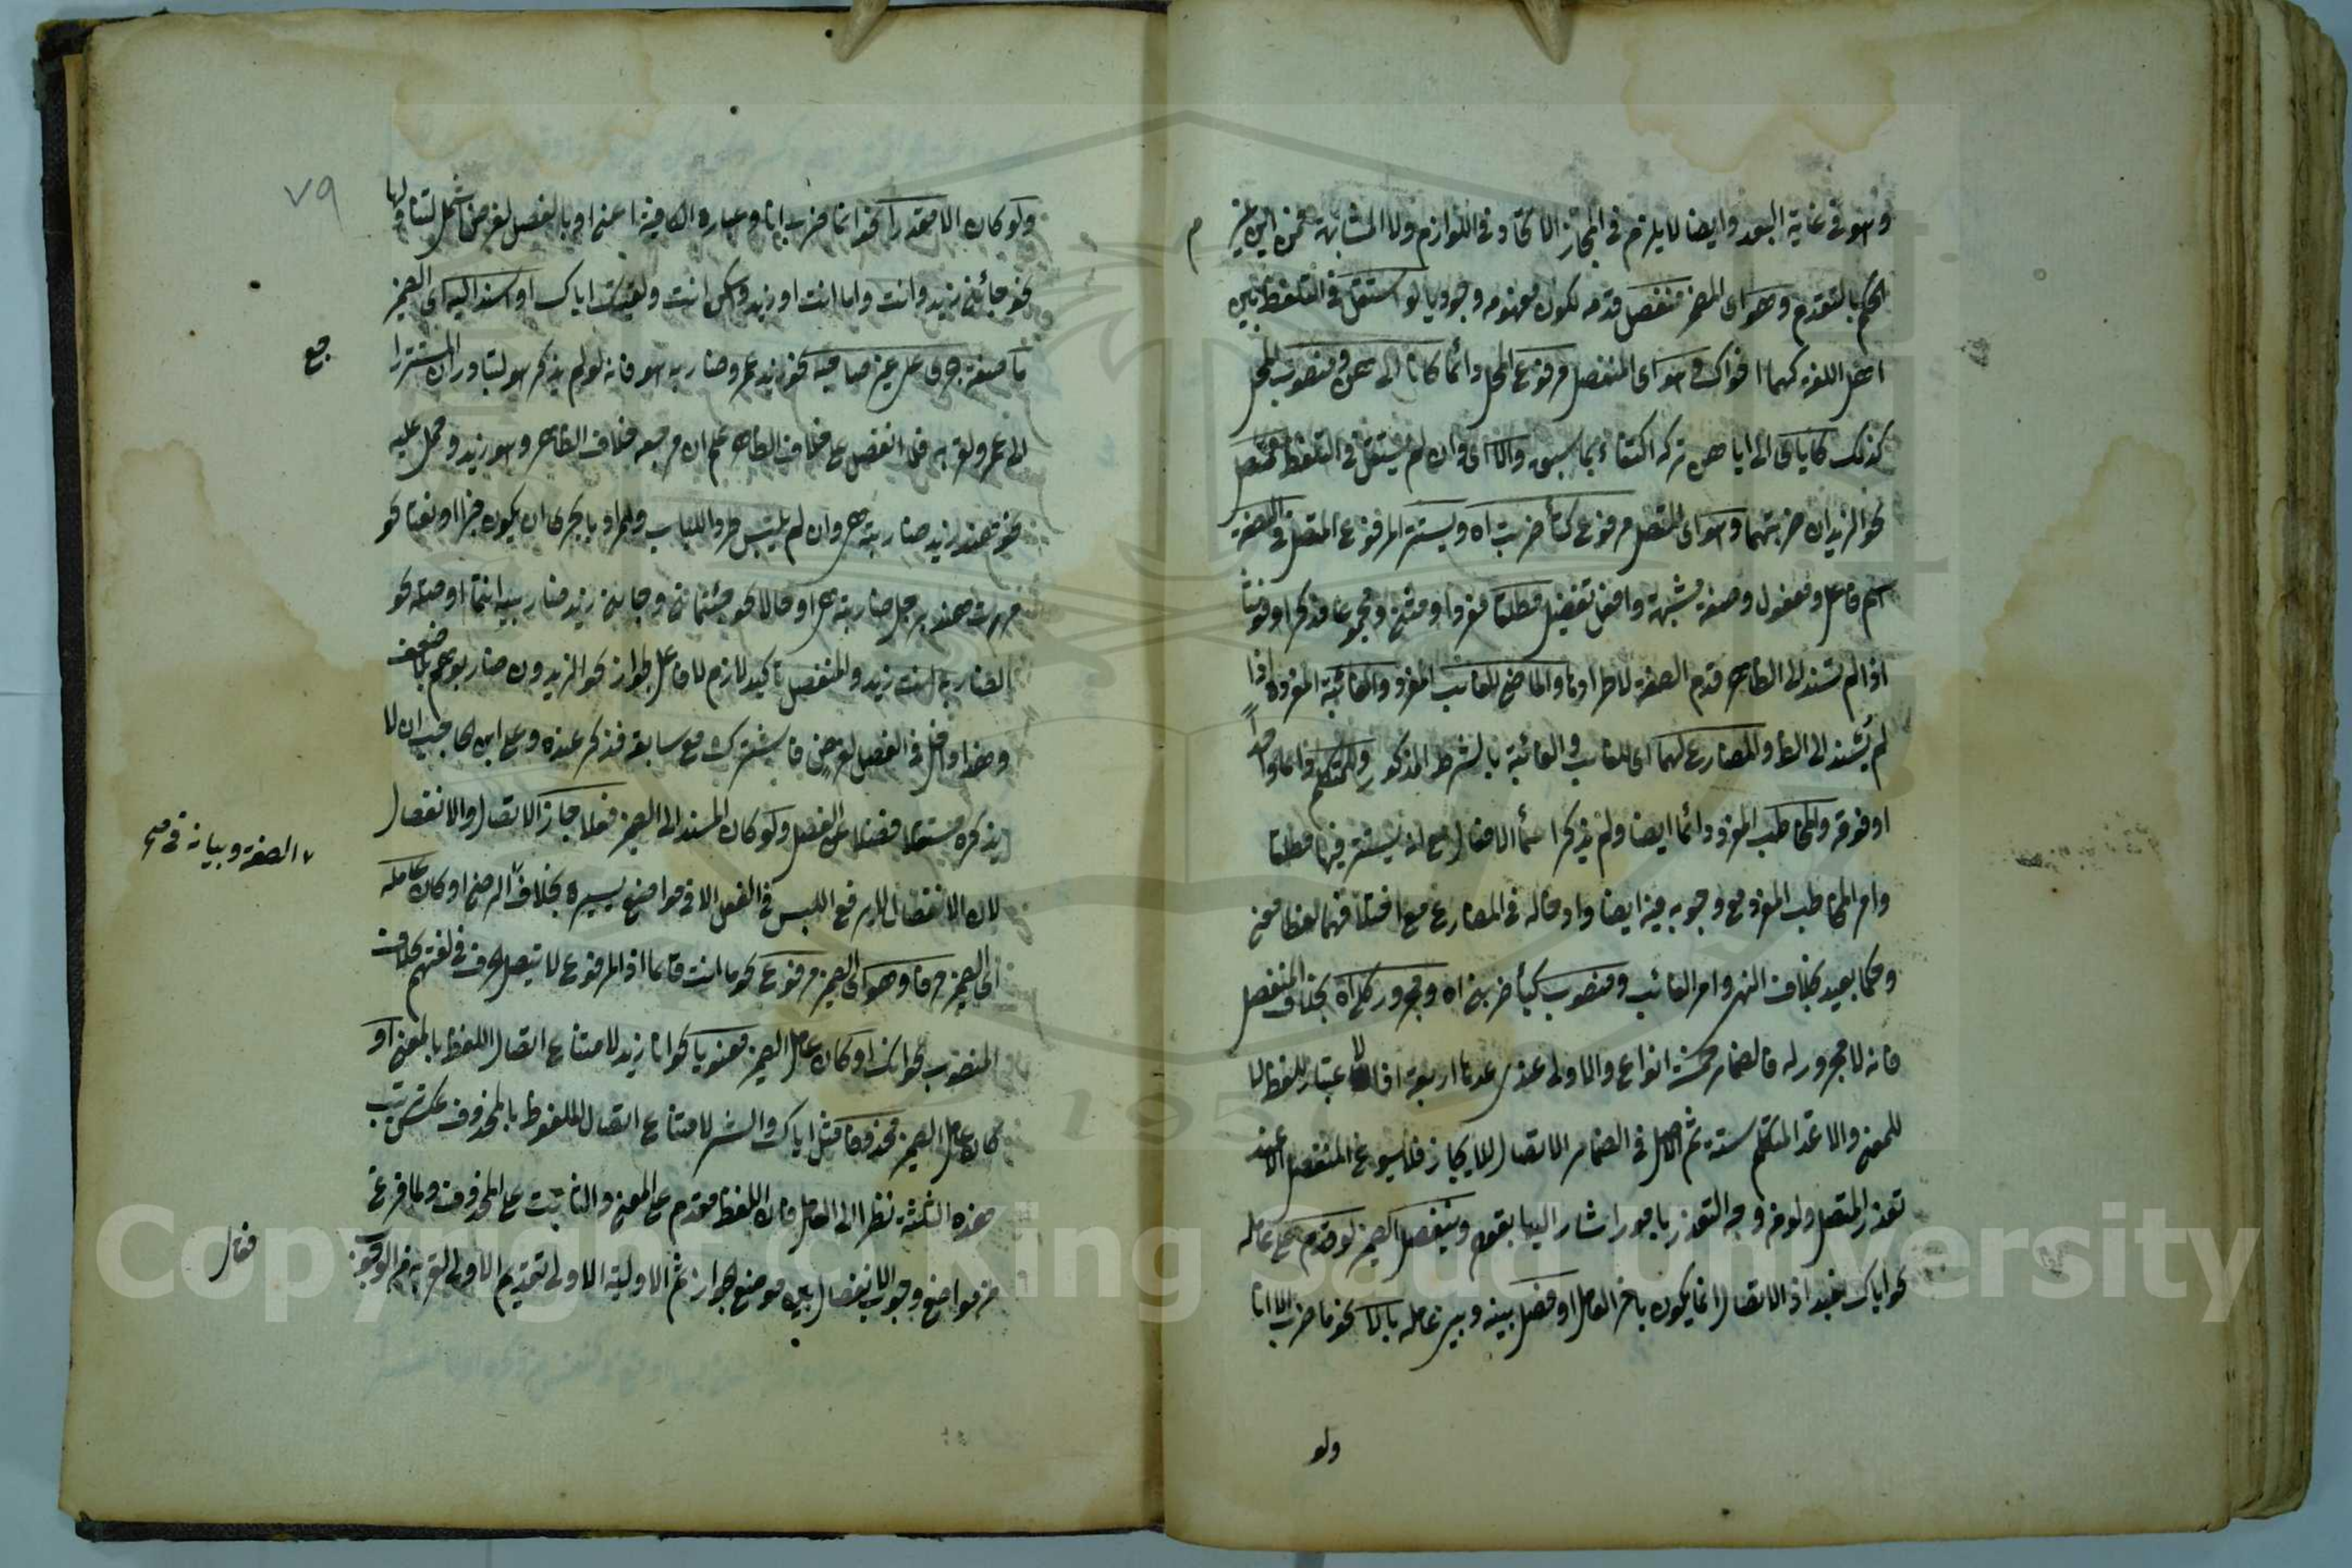 وهو في غاية البعد وايضا لا يلزم في المجاز الاتحاد في اللوازم ولا المشابهة فمن اين
الحكم بالتقدم وهو اى المضمر منفصل قدمه لكون مفهومه وجوديا لو استقل في التلفظ بين
اهل اللغة كهما اخواك وهو اى المنفصل مرفوع المحل دائما كانا الى هن ومنصوب المحل
كذلك كاياى الى اياهن تركه اكتفاء بما سبق والا اى وان لم يستقل في التلفظ فمتصل
نحو الزيدان ضربتهما وهو اى المتصل مرفوع كتاء ضربت اه ويستتر المرفوع المتصل في الصفة
اسم فاعل ومفعول وصفة مشبهة وافعل تفضيل مطلقا مفردا ومثنى ومجموعا مذكرا ومؤنثا
اذا لم تسند الى الظاهر قدم الصفة لاطرادها والماضي للغائب المفرد والغائبة المفردة اذا
لم يسند الى الظا والمضارع لهما اى للغائب والغائبة بالشرط المذكور وللمتكلم دائما واحدا
او فوقه والمخاطب المفرد دائما ايضا ولم يذكر اسماء الافعال مع انه يستتر فيها مطلقا
وامر المخاطب المفرد مع وجوبه فيه ايضا وادخاله في المضارع مع اختلافهما لفظا ومعنى
وحكما بعيد بخلاف النهى وامر الغائب ومنصوب كياء ضربنى اه ومجرور كلى اه بخلاف المنفصل
فانه لا مجرور له فالضمائر خمسة انواع والاولى عندى عدها اربعة اذ الاعتبار للفظ لا
للمعنى والا عد المتكلم ستة ثم الاصل في الضمائر الاتصال للايجاز فلا يسوغ المنفصل الا عند
تعذر المتصل ولوم وجه التعذر بامور اشار اليها بقوله وينفصل الضمير لو قدم على عامله
نحو اياك نعبد اذ الاتصال انما يكون باخر العامل او فصل بينه وبين عامله بالا نحو ما ضرب الا انا
ولو
٧٩
ولو كان الا مقدرا نحو انما ضرب انا وعبارة الكافية اعنى او بالفصل لغرض اشمل لتناولها
نحو جائنى زيد وانت واما انت او زيد ولكن انت ولقيتك اياك او اسند اليه اى الضمير
ما صفة جرى على غير صاحبه نحو زيد عمرو ضاربه هو فانه لو لم يذكر هو لتبادر ان المستتر راجع
الى عمرو لقربه فلما انفصل على خلاف الظاهر علم ان مرجعه خلاف الظاهر وهو زيد وحمل عليه
نحو هند زيد ضاربته هى وان لم يلتبس طردا للباب والمراد بالجرى ان يكون خبرا او نعتا نحو
مررت هند برجل ضاربته هى او حالا نحو جئتمانى وجاءنى زيد ضاربيه انتما او صلة نحو
الضاربه انت زيد والمنفصل تاكيد لازم لا فاعل لجواز نحو الزيدون ضاربوهم هم بلا ضعف
وهذا داخل في الفصل لغرض فاشترك مع سابقه فذكر عنده وعلى ابن الحاجب ان لا
يذكره مستقلا فضلا عن الفصل ولو كان المسند الى الضمير فعلا جاز الاتصال والانفصال
لان الانفصال لا يرفع اللبس في الفعل الا في مواضع يسيرة بخلاف الصفة وبيانه في الرضى او كان عامله
اى الضمير حرفا وهو اى الضمير مرفوع نحو ما انت قائما اذ المرفوع لا يتصل بالحرف في لغتهم بخلاف
المنصوب نحو انك او كان عامل الضمير معنويا نحو انا زيد لامتناع اتصال اللفظ بالمعنى او
كان عامل الضمير محذوفا مثل اياك والشر لامتناع اتصال الملفوظ بالمحذوف عكس ترتيب
هذه الثلثة نظرا الى العامل فان اللفظ مقدم على المعنى والثابت على المحذوف ولما فرغ
من مواضع وجوب الانفصال بين موضع الجواز ثم الاولية الاولى لتقديم الاولى لقربه من الوجوب
فقال